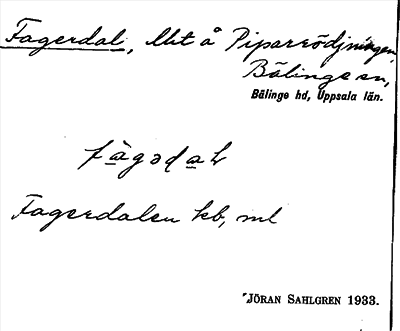 Fagerdal, lht å Piparrödjningen,
Bälinge sn,
Bälinge hd, Uppsala län.
fàgədaḷ
Fagerdalen kb, ml
JÖRAN SAHLGREN 1933.